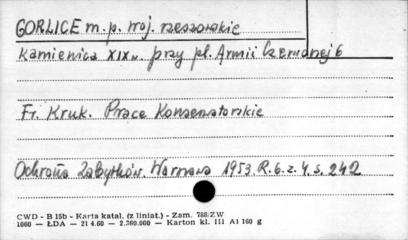 GORLICE m.p. woj. rzeszowskie
Kamienica XIX w. przy pl. Armii Czerwonej 6
Fr. Kruk. Prace Konserwatorskie
Ochrona Zabytków. Warszawa 1953. R. 6. z. 4, s. 242
CWD - B 15b - Karta katal. (z liniat.) - Zam. 788/ZW
1060 — ŁDA — 21 4.60 — 2.360.000 — Karton kl. III A1 160 g